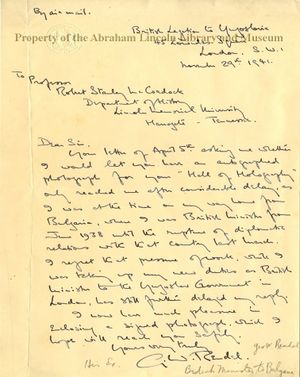 By air mail.
British Legation to Yugoslavia
Property of the Abraham Lincoln Library and Museum
London, S.W.1
29th 1941.
To Professor
Robert Stanley McCordock
Department of History
Lincoln Memorial University
Harrogate - Tennessee.
Dear Sir,
Your letter of April 5th asking me whether
I would let you have an autographed
photograph for your "Hall of Holography"
only reached me after considerable delay, as
I was at the time on my way home from
Bulgaria, where I was British Minister from
June 1938 until the rupture of diplomatic
relations with that country last March.
I regret that pressure of work, while I
was taking up my new duties as British
Minister to the Yugoslav Government in
London, has still further delayed my reply.
I now have much pleasure in
enclosing a signed photograph, which I
hope will reach you safely.
Yours very truly
George Rendel
British Minister to Bulgaria